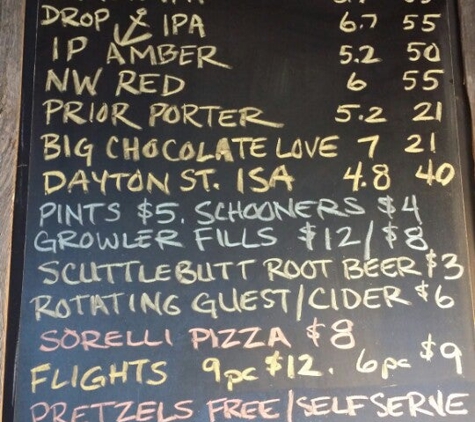 DROP & IPA 6.7 55
IP AMBER 5.2 50
NW RED 6 55
PRIOR PORTER 5.2 21
BIG CHOCOLATE LOVE 7 21
DAYTON ST. ISA 4.8 40
PINTS $5. SCHOONERS $4
GROWLER FILLS $12/$8
SCUTTLEBUTT ROOT BEER $3
ROTATING GUEST/CIDER $6
SORELLI PIZZA $8
FLIGHTS 9pc $12. 6pc $9
PRETZELS FREE/SELF SERVE